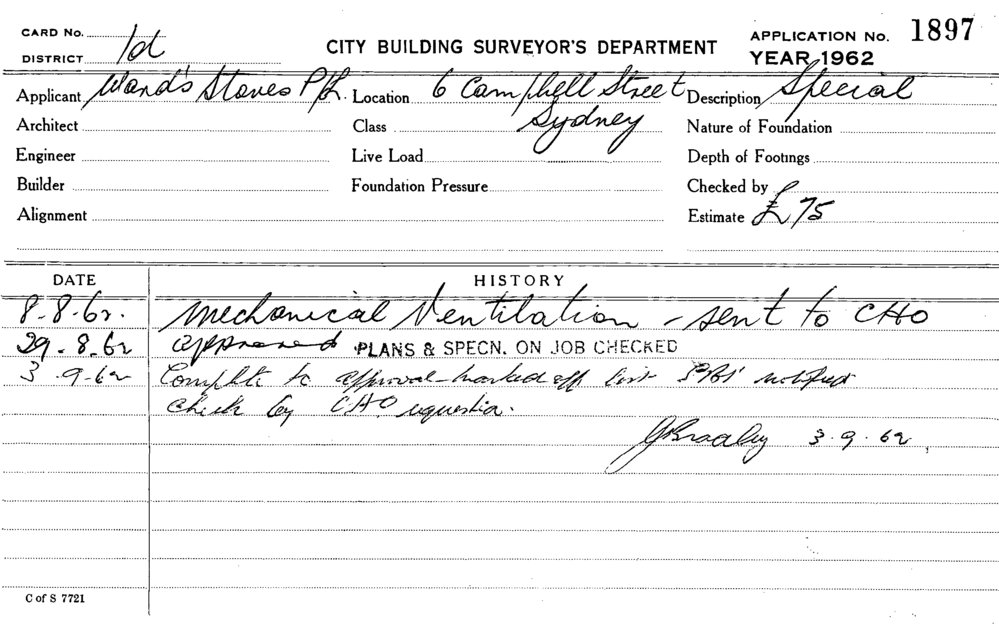 CARD No.
DISTRICT 1d
CITY BUILDING SURVEYOR'S DEPARTMENT
APPLICATION No. 1897
YEAR 1962
Applicant Ward's Stoves P/L. Location 6 Campbell Street Description Special
Architect Class Sydney Nature of Foundation
Engineer Live Load Depth of Footings
Builder Foundation Pressure Checked by
Alignment Estimate £75
DATE HISTORY
8.8.62. Mechanical Ventilation - sent to CHO
29.8.62 approved PLANS & SPECN. ON JOB CHECKED
3.9.62 Complete to approval - marked off list notified
Check by CHO
3.9.62
C of S 7721